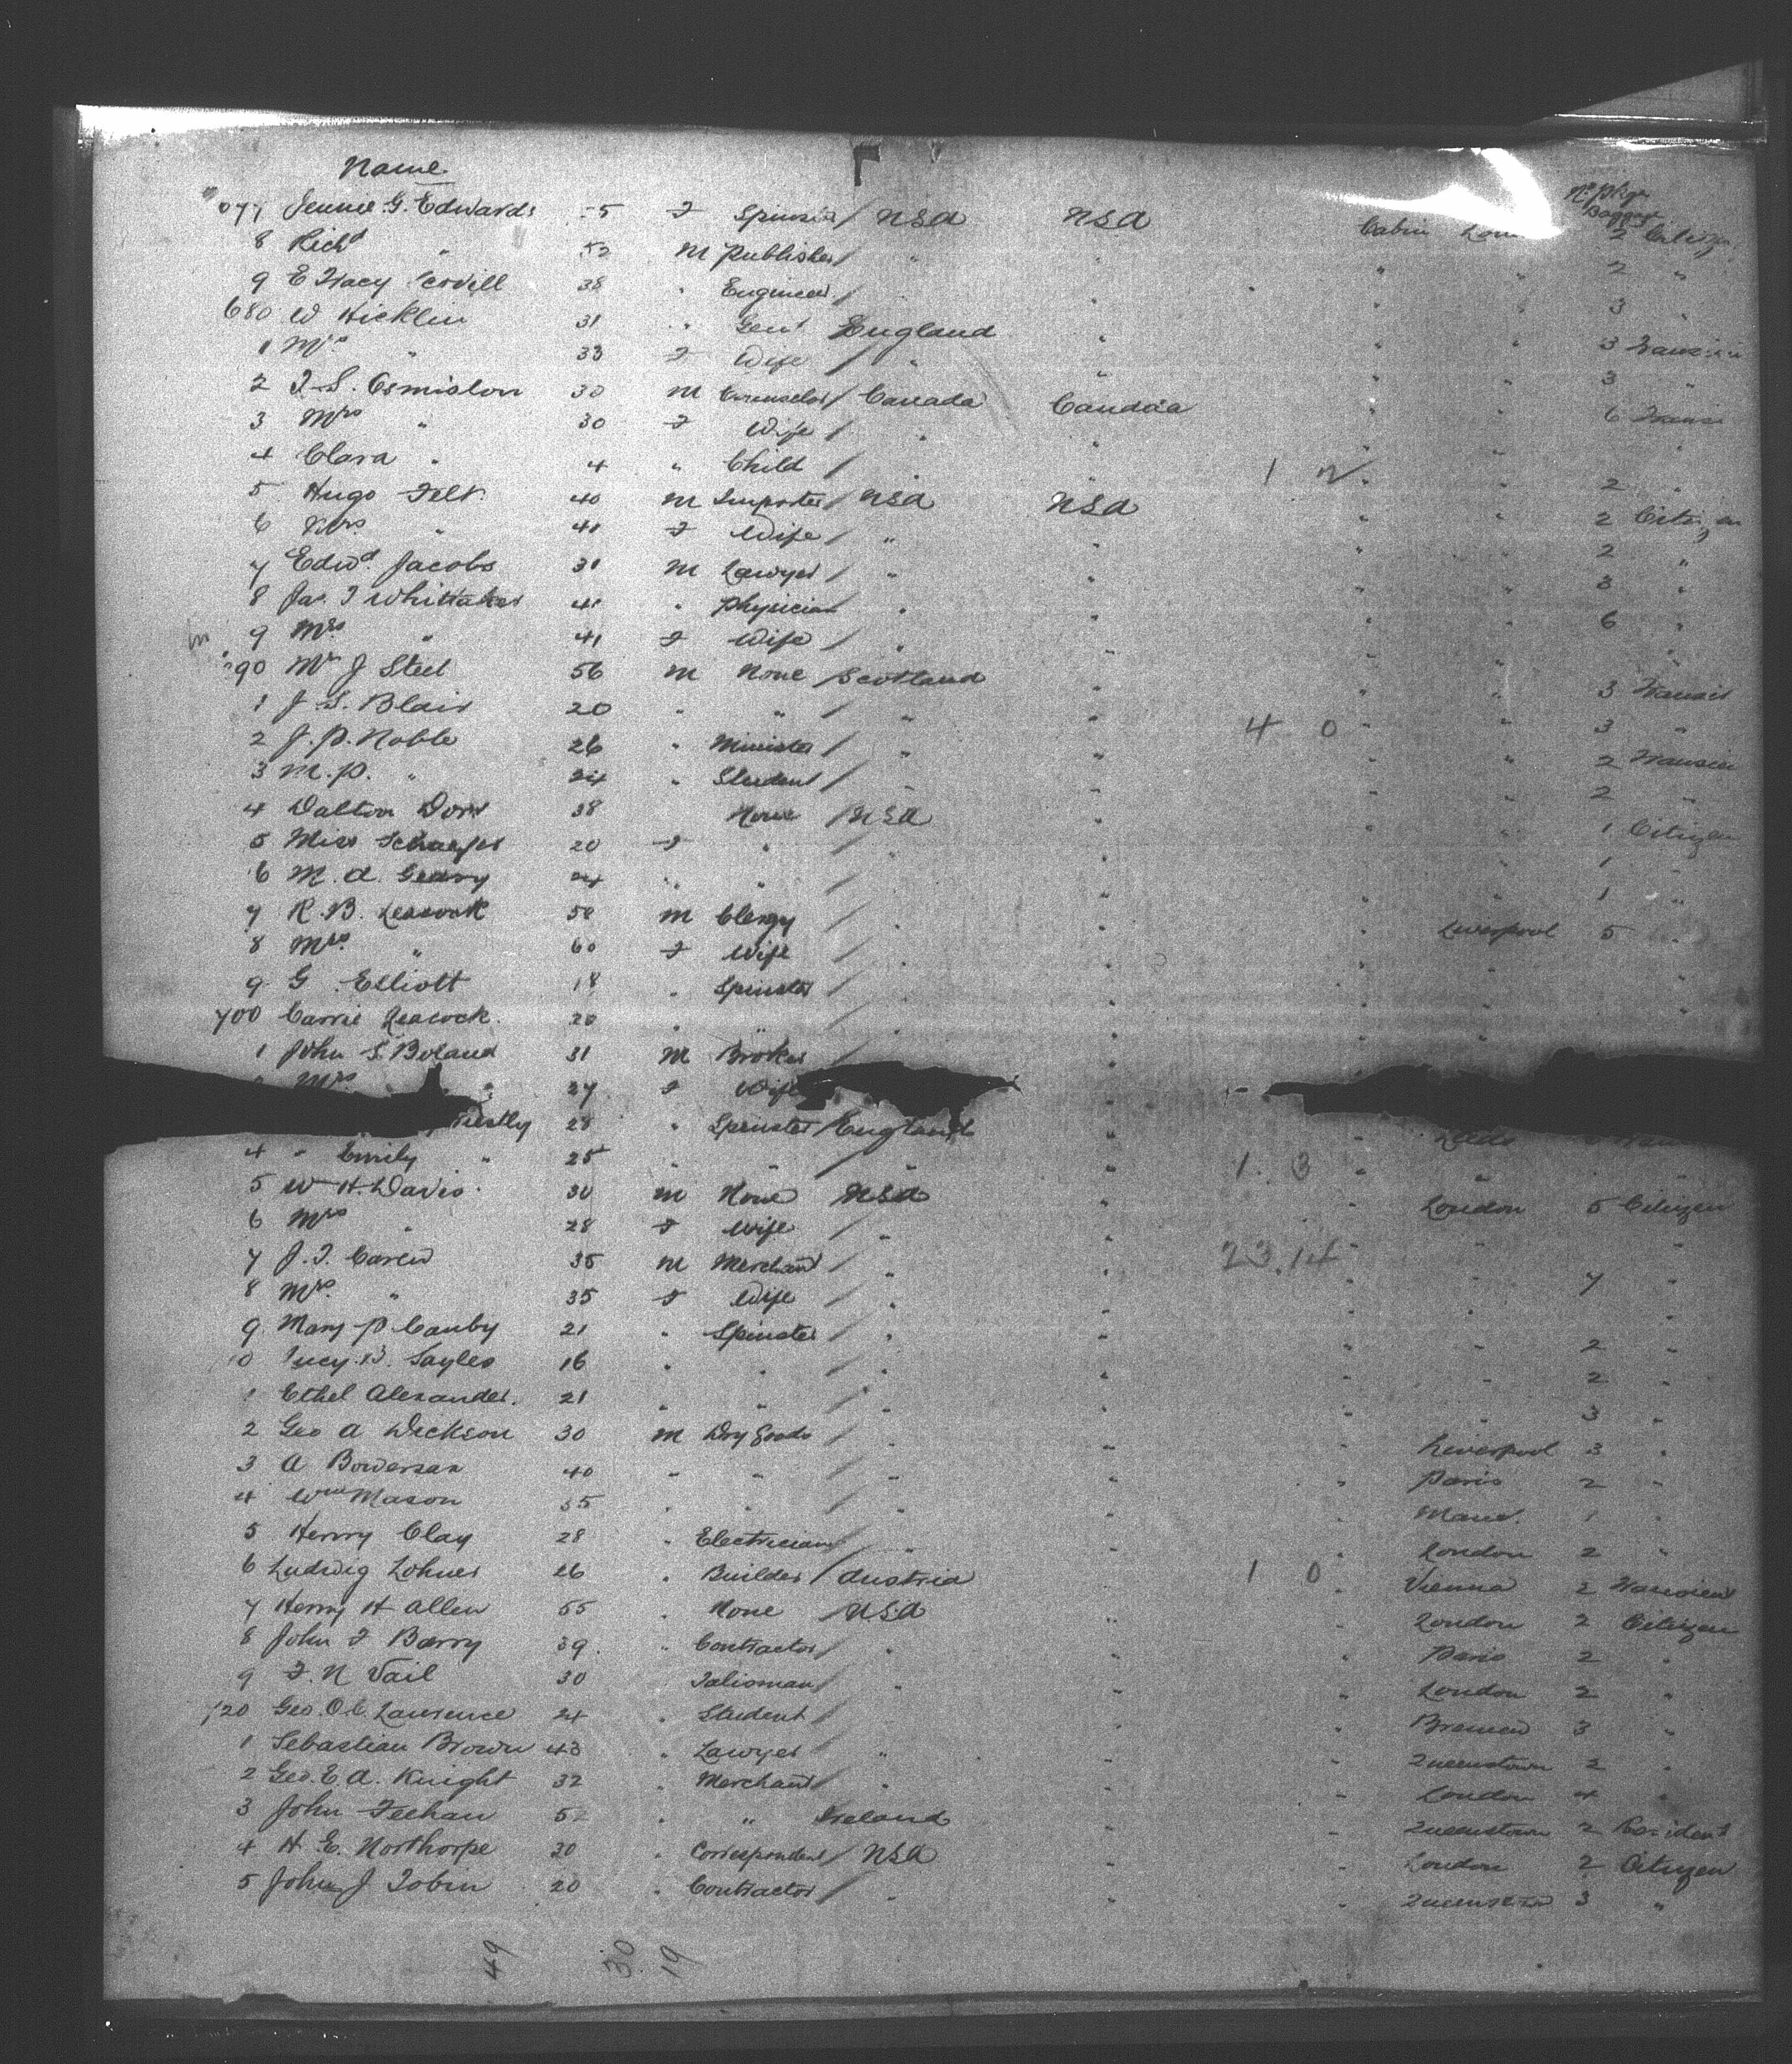 Name Nº Pkgs Baggage
Jennie G. Edwards 5 F Spinster / USA USA Cabin 2 Citizen
8 Richd " 52 M Publisher / " " " " 2 "
9 E Tracy 38 " Engineer / " " " " 3 "
680 W Hicklin 31 " Gent England " " " 3 Transit
1 Mrs " 33 F Wife / " " " " 3 "
2 J. S. Ormiston 30 M / Canada Canada " " 6 Transit
3 Mrs " 30 F Wife / " " " "
4 Clara " 4 " Child / " " 1 " " 2 "
5 Hugo Felt 40 M Importer / USA USA " " 2 Citizen
6 Mrs " 41 F Wife / " " " " 2 "
7 Edwd Jacobs 31 M Lawyer / " " " " 3 "
8 Jas. T Whittaker 41 " Physician " " " " 6 "
9 Mrs " 41 F Wife / " " " " "
90 Mr J Steel 56 M None / Scotland " " " 3 Transit
1 J. S. Blair 20 " " / " " 4 0 " " 3 "
2 J. P. Noble 26 " Minister / " " " " 2 Transit
3 M. P. " 24 " Student / " " " " 2 "
4 Dalton Dorr 38 None / USA " " " 1 Citizen
5 Miss Schaefer 20 F " / " " " " 1 "
6 M. A. Geary 24 " " / " " " " 1 "
7 R. B. 58 M Clergy / " " " Liverpool 5 "
8 Mrs " 60 F Wife / " " " " "
9 G. Elliott 18 " Spinster / " " " " "
700 Carrie Leacock 20 " " / " " " " "
1 John S. Boland 31 M Broker / "
Mrs 27 F Wife "
28 " Spinster / England " " Leeds
4 " Emily " 25 " " / " " 1 3 " " "
5 W. H. Davis 30 M None USA " " London 5 Citizen
6 Mrs " 28 F Wife / " " " " "
7 J. T. Carew 35 M Merchant / " " 23.14 " " 7 "
8 Mrs " 35 F Wife / " " " " "
9 Mary P. Canby 21 " Spinster / " " " " 2 "
10 Lucy B. Sayles 16 " " / " " " " 2 "
1 Ethel Alexander. 21 " " / " " " " 3 "
2 Geo A Dickson 30 M Dry Goods / " " " Liverpool 3 "
3 A Bowersan 40 " " / " " " Paris 2 "
4 Wm Mason 35 " " / " " " 1 "
5 Henry Clay 28 " Electrician / " " " London 2 "
6 Ludwig Lohner 26 " Builder / Austria " 1 0 " Vienna 2 Transient
7 Henry H Allen 55 " None / USA " " London 2 Citizen
8 John F Barry 39 " Contractor / " " " Paris 2 "
9 F. N Vail 30 " Talisman / " " " London 2 "
720 Geo. O C. Lawrence 24 " Student / " " " Bremen 3 "
1 Sebastian Brown 43 " Lawyer / " " " Queenstown 2 "
2 Geo. E. A. Knight 32 " Merchant / " " " London 4 "
3 John Feehan 52 " " Ireland " " Queenstown 2 Resident
4 H. E. Northorpe 30 " Correspondent / USA " " London 2 Citizen
5 John J Tobin 20 " Contractor / " " " Queenstown 3 "
49 30 19